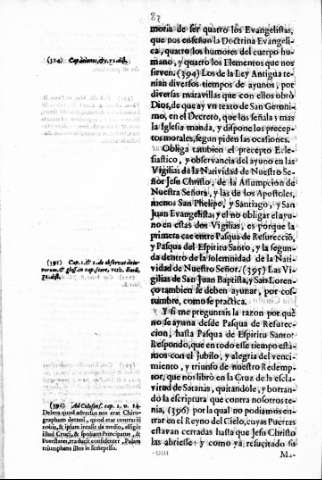 87
moria de ser quatro los Evangelistas,
que nos enseñan la Doctrina Evangeli-
ca, quatro los humores del cuerpo hu-
mano, y quatro los Elementos que nos
sirven. (394) Los de la Ley Antigua te-
nian diversos tiempos de ayunos, por
diversas maravillas que con ellos obrò
Dios, de que ay vn texto de San Geroni-
mo, en el Decreto, que los señala; mas
la Iglesia manda, y dispone los precep-
tos morales, segun piden las ocasiones.
Obliga tambien el precepto Ecle-
siastico, y observancia del ayuno en las
Vigilias de la Natividad de Nuestro Se-
ñor Jesu Christo, de la Assumpcion de
Nuestra Señora, y las de los Apostoles,
menos San Phelipe, y Santiago, y San
Juan Evangelista; y el no obligar el ayu-
no en estas dos Vigilias, es porque la
primera cae entre Pasqua de Resurecciõ,
y Pasqua del Espiritu Santo, y la segun-
da dentro de la solemnidad de la Nati-
vidad de Nuestro Señor. (395) Las Vi-
gilias de San Juan Baptista, y San Loren-
ço tambien se deben ayunar, por cos-
tumbre, como se practica.
Y si me preguntan la razon por què
no se ayuna desde Pasqua de Resurec-
cion, hasta Pasqua de Espiritu Santo?
Respondo, que en todo este tiempo esta-
mos con el Jubilo, y alegria del venci-
miento, y triunfo de nuestro Redemp-
tor, que nos librò en la Cruz de la escla-
vitud de Satanàs, quitandole, y borran-
do la escriptura que contra nosotros te-
nia, (396) por la qual no podiamos en-
trar en el Reyno del Cielo, cuyas Puertas
estavan cerradas hasta que Jesu Christo
las abriesse; y como yà resucitado su
M
(394) Cap.
(395) Cap. 1. & 2. de observat. ieiu-
(396) Ad Colossens. cap. 2. v. 14.
Delens quod adversus nos erat Chiro-
graphum decreti, quod erat contrarium
nobis, & ipsum tulit de medio, affigens
illud Cruci, & spolians Principatus, &
Potestates, traduxit confidenter, Palam
triumphans illos in semetipso.